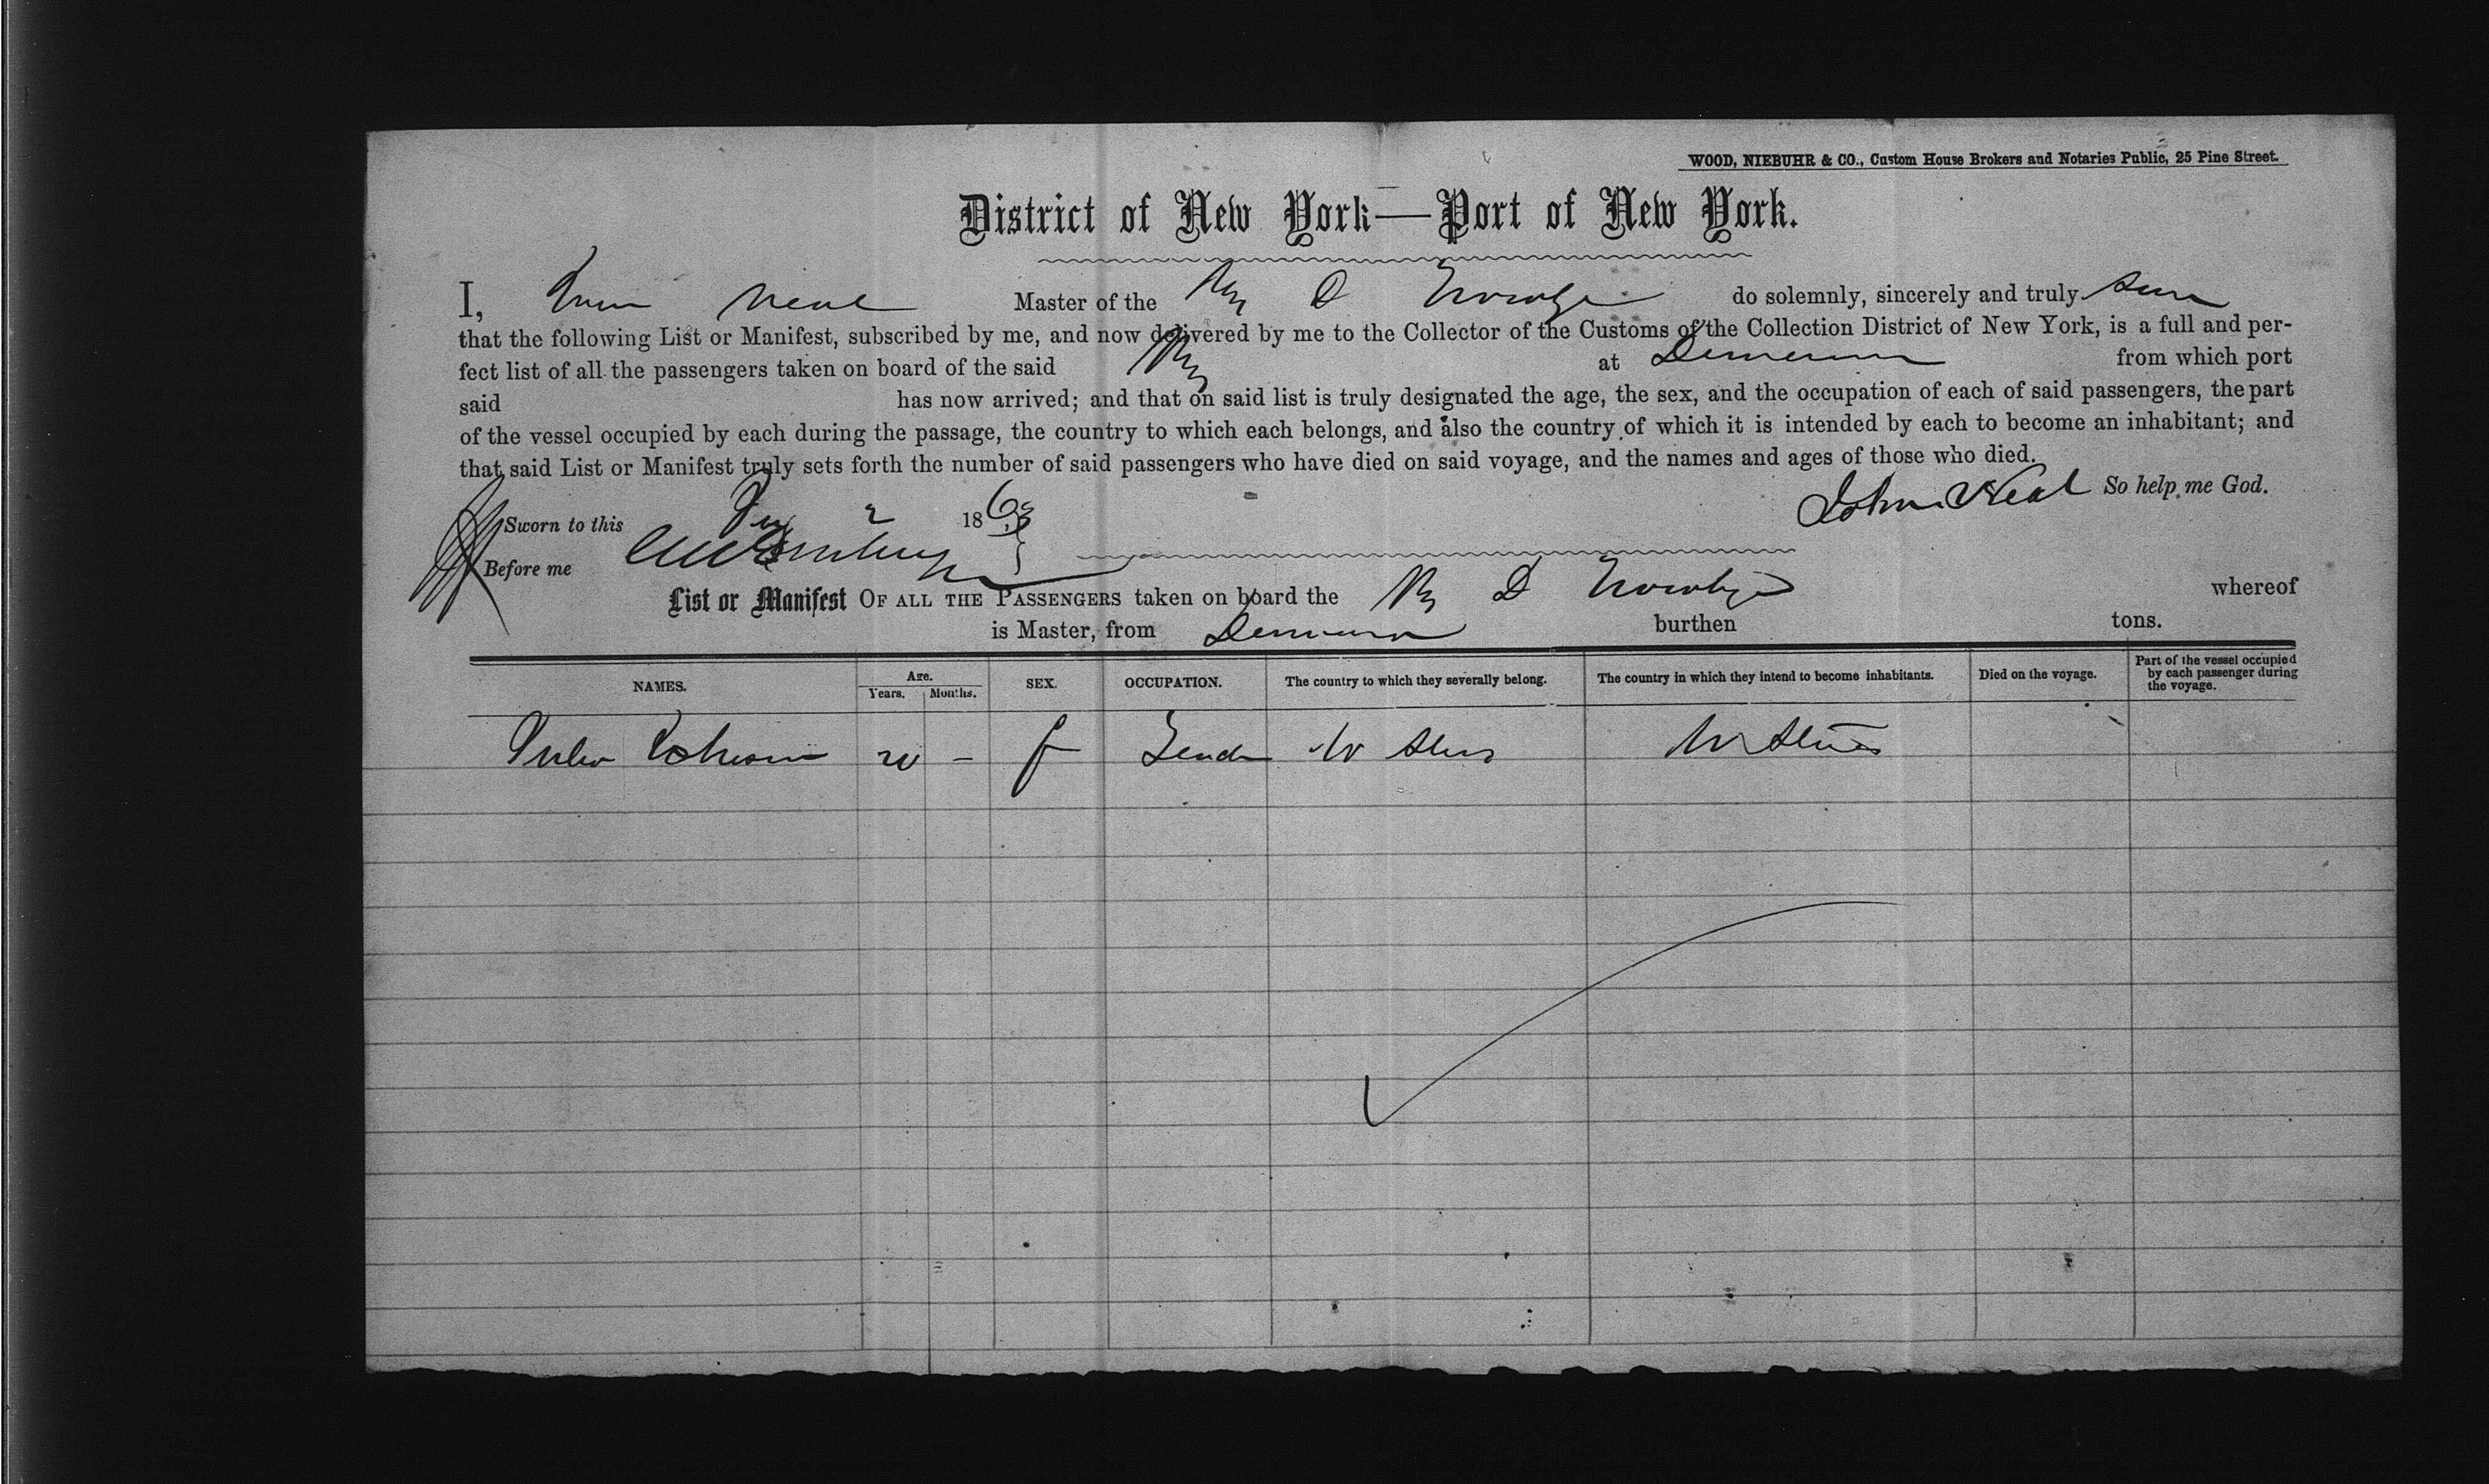 WOOD, NIEBUHR & CO., Custom House Brokers and Notaries Public, 25 Pine Street.
District of New York—Port of New York.
I, John Neal Master of the Brig D do solemnly, sincerely and truly
that the following List or Manifest, subscribed by me, and now delivered by me to the Collector of the Customs of the Collection District of New York, is a full and per-
fect list of all the passengers taken on board of the said Brig at Demerara from which port
said has now arrived; and that on said list is truly designated the age, the sex, and the occupation of each of said passengers, the part
of the vessel occupied by each during the passage, the country to which each belongs, and also the country of which it is intended by each to become an inhabitant; and
that said List or Manifest truly sets forth the number of said passengers who have died on said voyage, and the names and ages of those who died.
John Neal So help me God.
Sworn to this 2 1863
Before me
List or Manifest OF ALL THE PASSENGERS taken on board the Brig D whereof
is Master, from Demerara burthen tons.
NAMES. Age. Years. Months. SEX. OCCUPATION. The country to which they severally belong. The country in which they intend to become inhabitants. Died on the voyage. Part of the vessel occupied by each passenger during the voyage.
Johnson — f